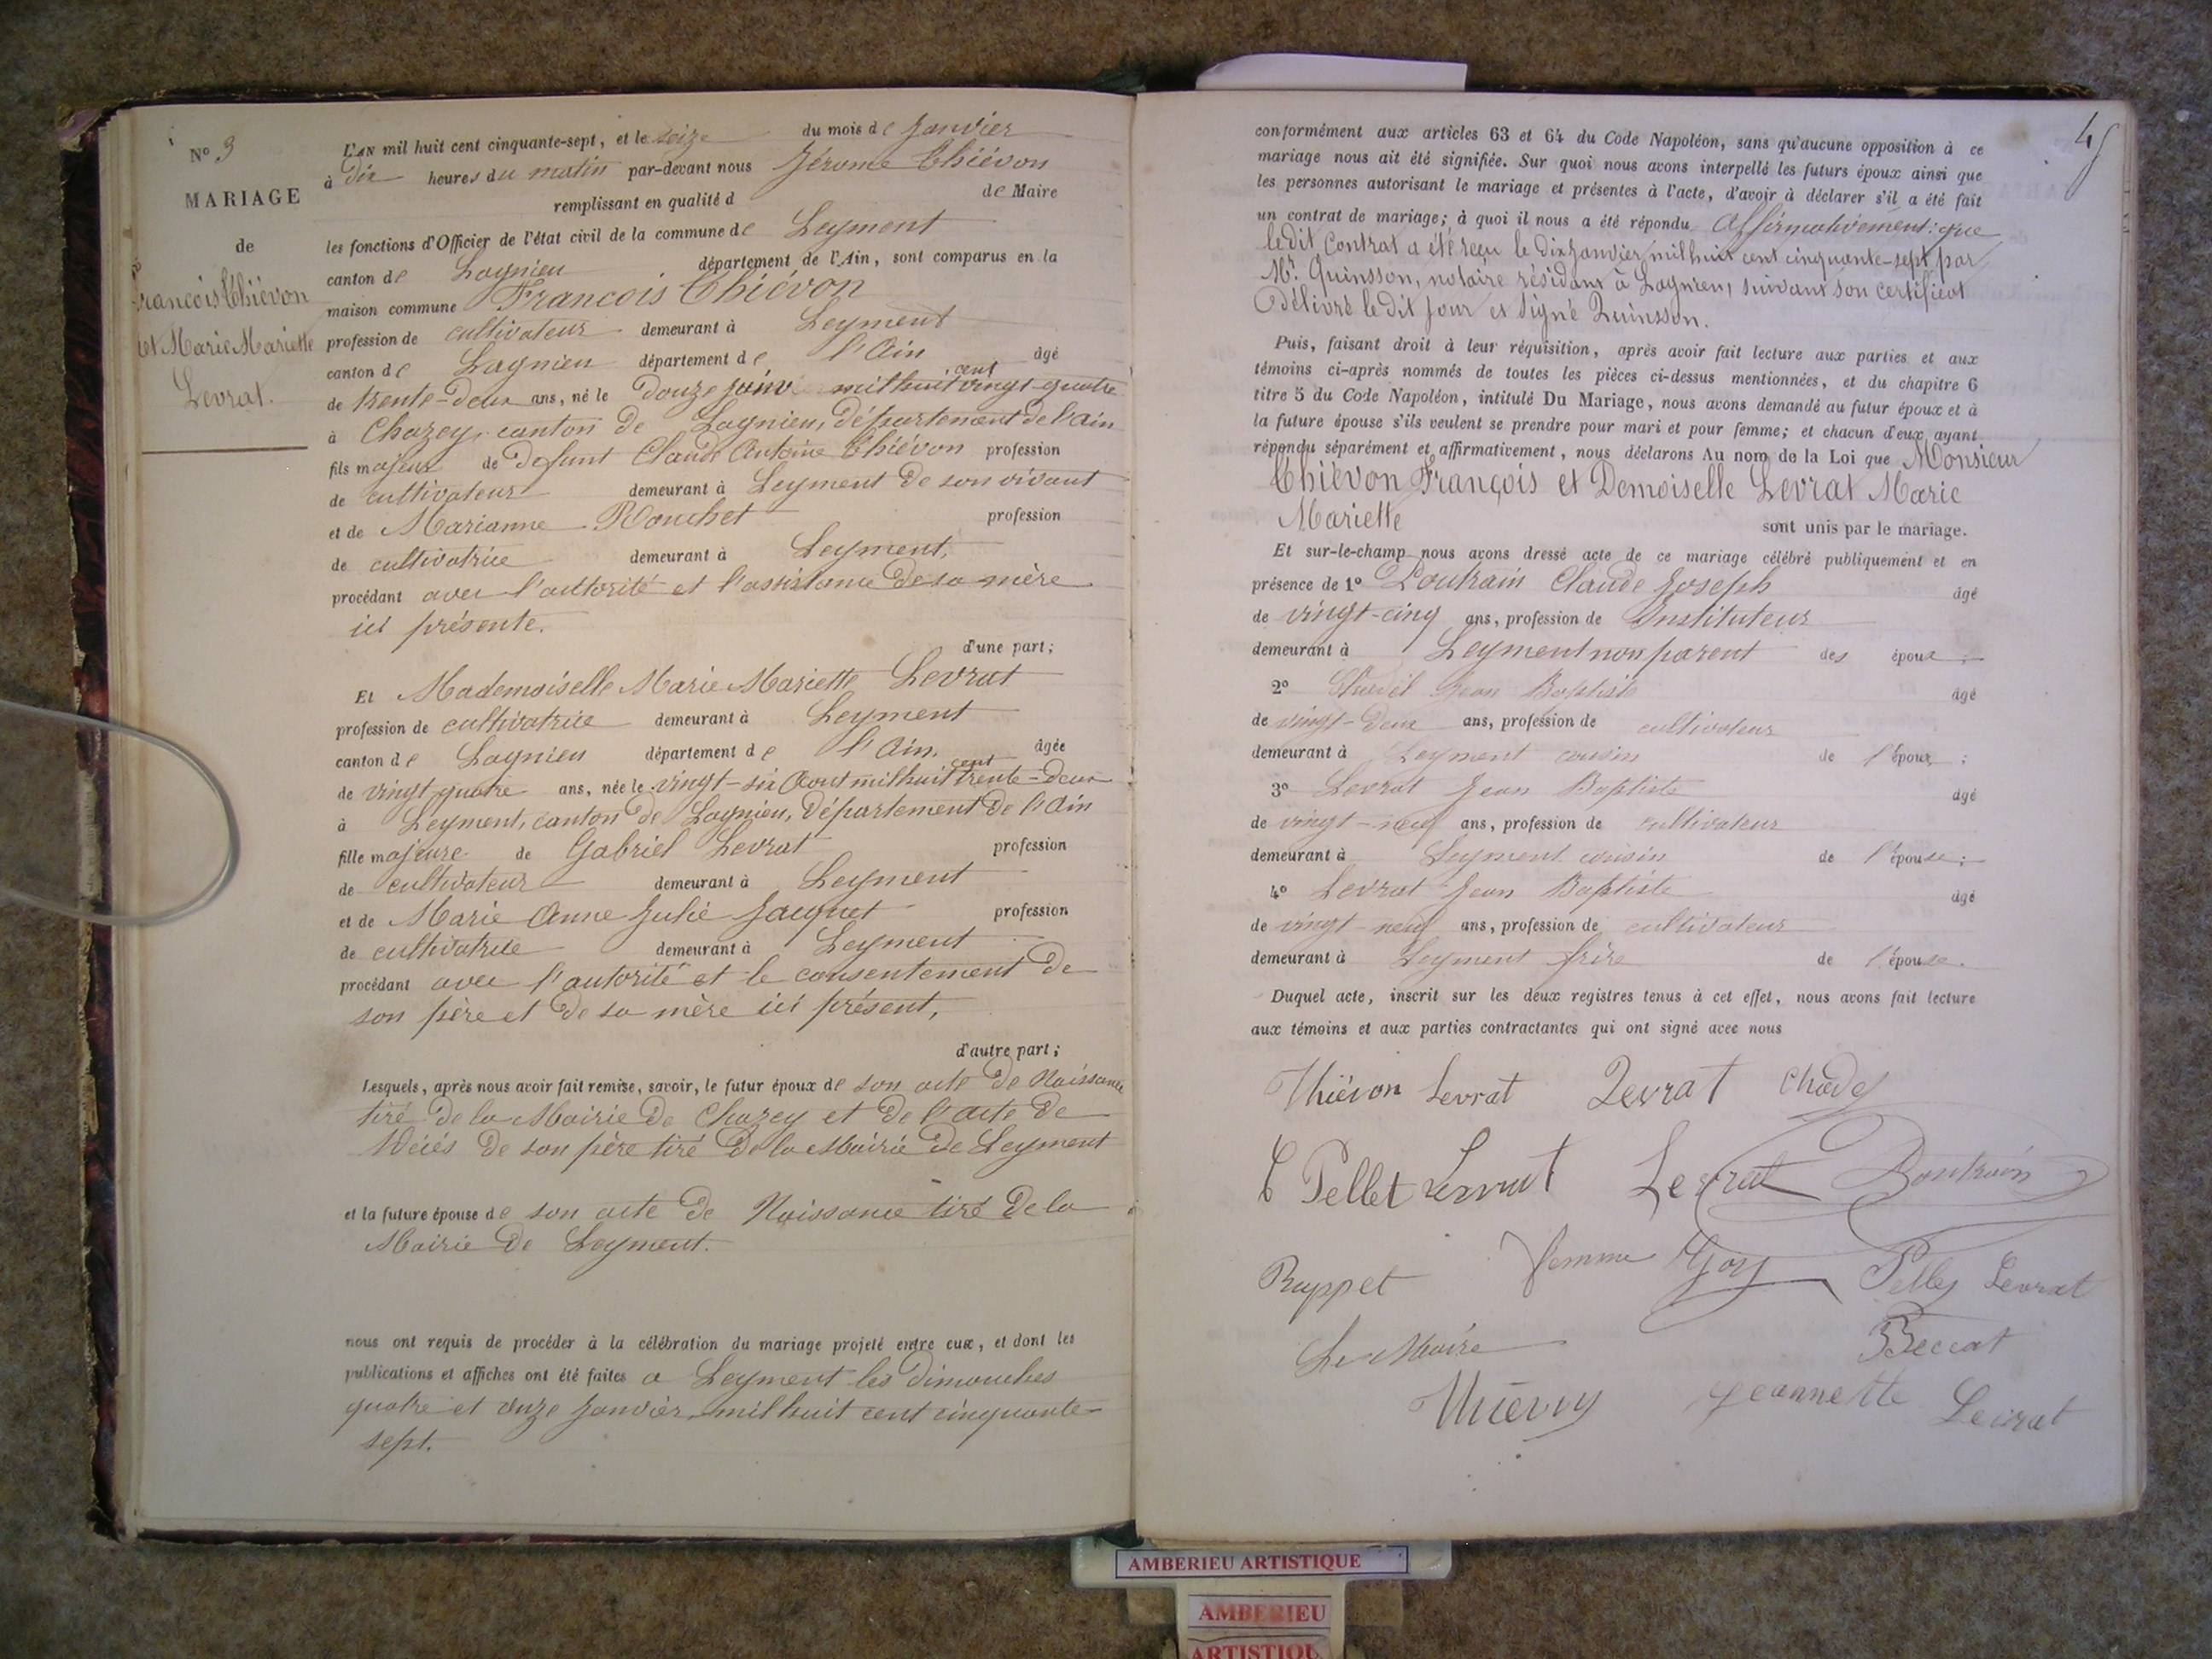 Nº 3
MARIAGE
de
François Thiévon
et Marie Mariette
Levrat.
L'AN mil huit cent cinquante-sept, et le seize du mois de Janvier
à dix heures du matin par-devant nous Jérome Thiévon
remplissant en qualité d de Maire
les fonctions d'Officier de l'état civil de la commune de Leyment
canton de Lagnieu département de l'Ain, sont comparus en la
maison commune François Thiévon
profession de cultivateur demeurant à Leyment
canton de Lagnieu département de l'Ain âgé
de trente-deux ans, né le douze mil huit cent vingt quatre
à Chazey, canton de Lagnieu, Département de l'ain
fils majeur de défunt Claude Antoine Thiévon profession
de cultivateur demeurant à Leyment de son vivant
et de Marianne profession
de cultivatrice demeurant à Leyment,
procédant avec l'autorité et l'assistance de sa mère
ici présente.
d'une part;
Et Mademoiselle Marie Mariette Levrat
profession de cultivatrice demeurant à Leyment
canton de Lagnieu département de l'Ain. âgée
de vingt quatre ans, née le vingt-six Aout mil huit cent trente-deux
à Leyment, canton de Lagnieu, Département de l'Ain
fille majeure de Gabriel Levrat profession
de cultivateur demeurant à Leyment
et de Marie Anne Julie Jacquet profession
de cultivatrice demeurant à Leyment
procédant avec l'autorité et le consentement de
son père et de sa mère ici présent,
d'autre part;
Lesquels, après nous avoir fait remise, savoir, le futur époux de son acte de Naissance
tiré de la Mairie de Chazey et de l'acte de
décés de son père tiré de la Mairie de Leyment
et la future épouse de son acte de Naissance tiré de la
Mairie de Leyment.
nous ont requis de procéder à la célébration du mariage projeté entre eux, et dont les
publications et affiches ont été faites a Leyment les dimanches
quatre et onze Janvier mil huit cent cinquante-
sept.
conformément aux articles 63 et 64 du Code Napoléon, sans qu'aucune opposition à ce
mariage nous ait été signifiée. Sur quoi nous avons interpellé les futurs époux ainsi que
les personnes autorisant le mariage et présentes à l'acte, d'avoir à déclarer s'il a été fait
un contrat de mariage; à quoi il nous a été répondu Affirmativement: que
le dit Contrat a été reçu le dix Janvier mil huit cent cinquante-sept par
Mr. Quinsson, notaire résidant à Lagnieu, suivant son certificat
délivré le dit jour et signé Quinsson.
Puis, faisant droit à leur réquisition, après avoir fait lecture aux parties et aux
témoins ci-après nommés de toutes les pièces ci-dessus mentionnées, et du chapitre 6
titre 5 du Code Napoléon, intitulé Du Mariage, nous avons demandé au futur époux et à
la future épouse s'ils veulent se prendre pour mari et pour femme; et chacun d'eux ayant
répondu séparément et affirmativement, nous déclarons Au nom de la Loi que Monsieur
Thiévon François et Demoiselle Levrat Marie
Mariette sont unis par le mariage.
Et sur-le-champ nous avons dressé acte de ce mariage célébré publiquement et en
présence de 1º Claude Joseph âgé
de vingt-cinq ans, profession de Instituteur
demeurant à Leyment non parent des époux;
2º Jean Baptiste âgé
de vingt-deux ans, profession de cultivateur
demeurant à Leyment cousin de l'époux;
3º Levrat Jean Baptiste âgé
de vingt-neuf ans, profession de cultivateur
demeurant à Leyment cousin de l'épouse;
4º Levrat Jean Baptiste âgé
de vingt-neuf ans, profession de cultivateur
demeurant à Leyment frère de l'épouse.
Duquel acte, inscrit sur les deux registres tenus à cet effet, nous avons fait lecture
aux témoins et aux parties contractantes qui ont signé avec nous
Thiévon Levrat Levrat
Pellet Levrat Levrat
Ruppet femme Goy Levrat
Le Maire Beccat
Jeannette Levrat
AMBERIEU ARTISTIQUE
AMBERIEU
ARTISTIQU